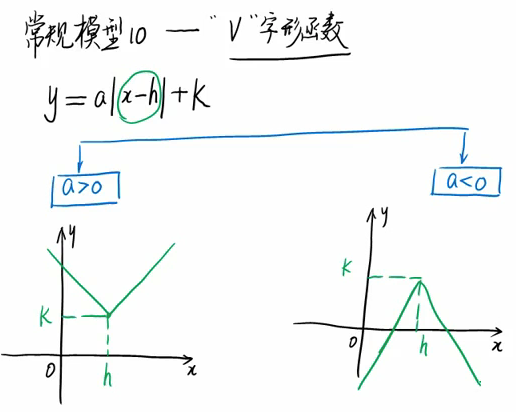 常规模型10 — "V"字形函数
y=a|x-h|+k
a>0
a<0
y
k
0
h
x
y
k
0
h
x